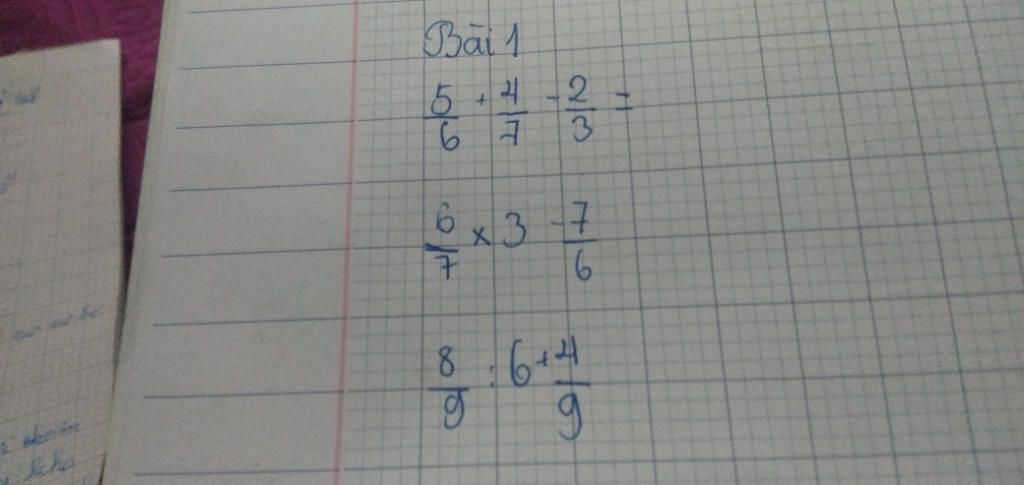 Bài 1
5/6 + 4/7 - 2/3 =
6/7 x 3 - 7/6
8/9 : 6 + 4/9